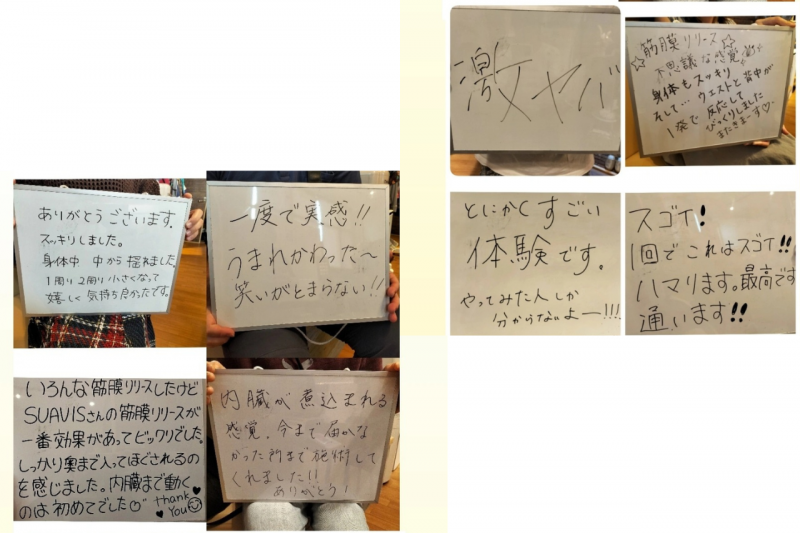 ありがとうございます。
スッキリしました。
身体中 中から揺れました。
1周り 2周り 小さくなって
嬉しく 気持ち良かったです。
一度で実感!!
うまれかわった〜
笑いがとまらない!!
いろんな筋膜リリースしたけど
SUAVISさんの筋膜リリースが
一番効果があってビックリでした。
しっかり奥まで入ってほぐされるの
を感じました。内臓まで動く
のは初めてでした♡
thank
you
内臓が煮込まれる
感覚。今まで届かな
かった所まで施術して
くれました!!
ありがとう!
激ヤバ
☆筋膜リリース☆
不思議な感覚
身体もスッキリ
そして… ウエストと背中が
1発で 反応して
びっくりしました
またきまーす♡
とにかくすごい
体験です。
やってみた人しか
分からないよー!!!
スゴイ!
1回でこれはスゴイ!!
ハマります。最高です
通います!!